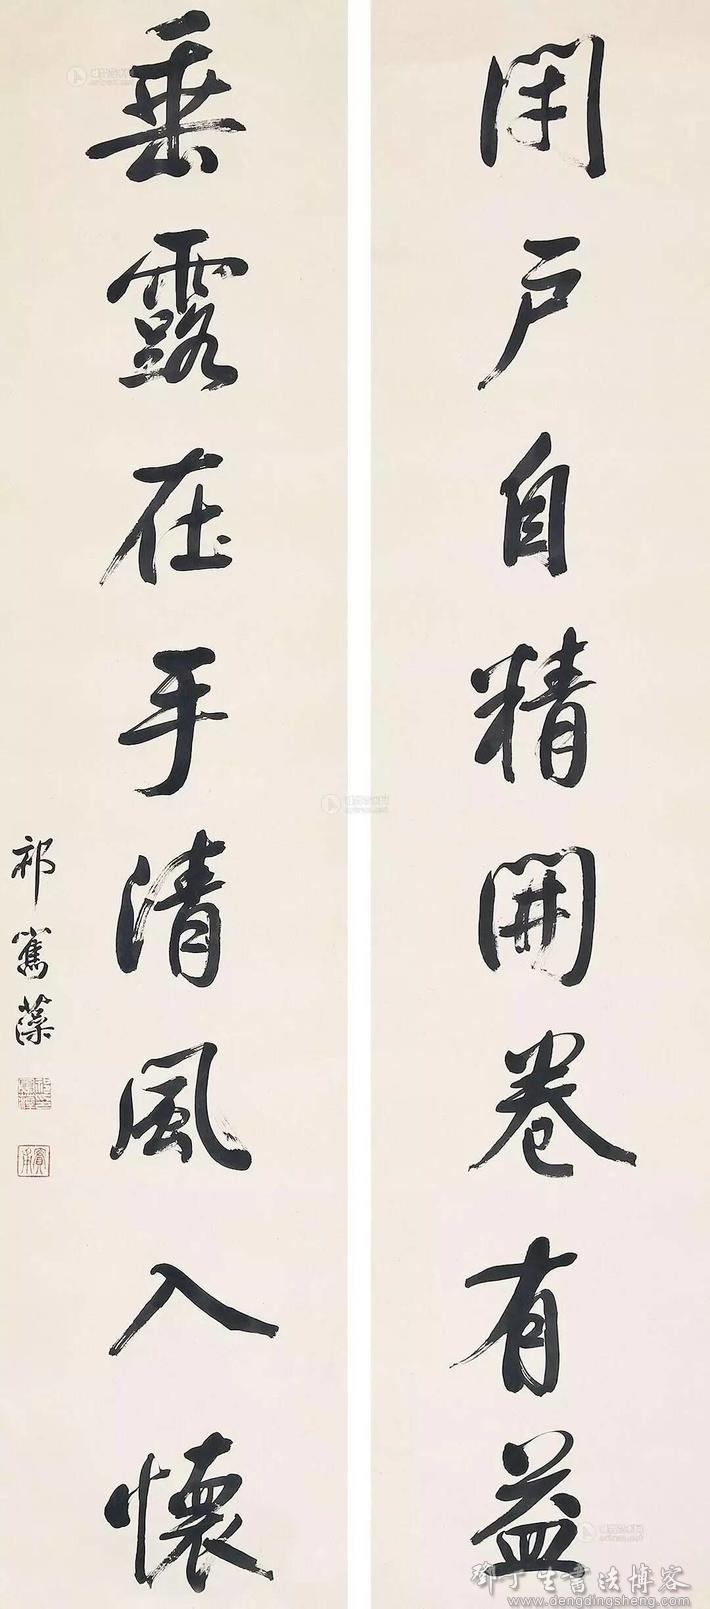 閉戶自精開卷有益
垂露在手清風入懷
祁寯藻
實甫
鄧丁生書法博客
www.dengdingsheng.com